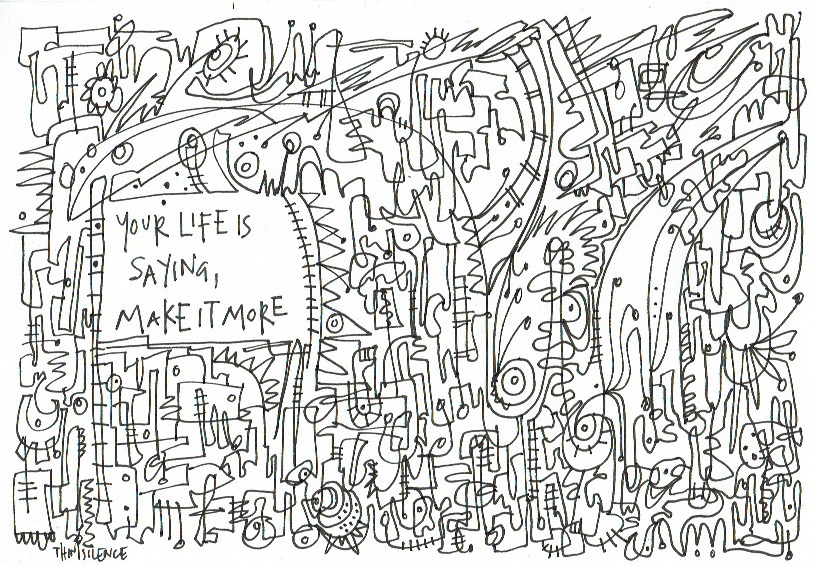 YOUR LIFE IS
SAYING,
MAKE IT MORE
THINSILENCE